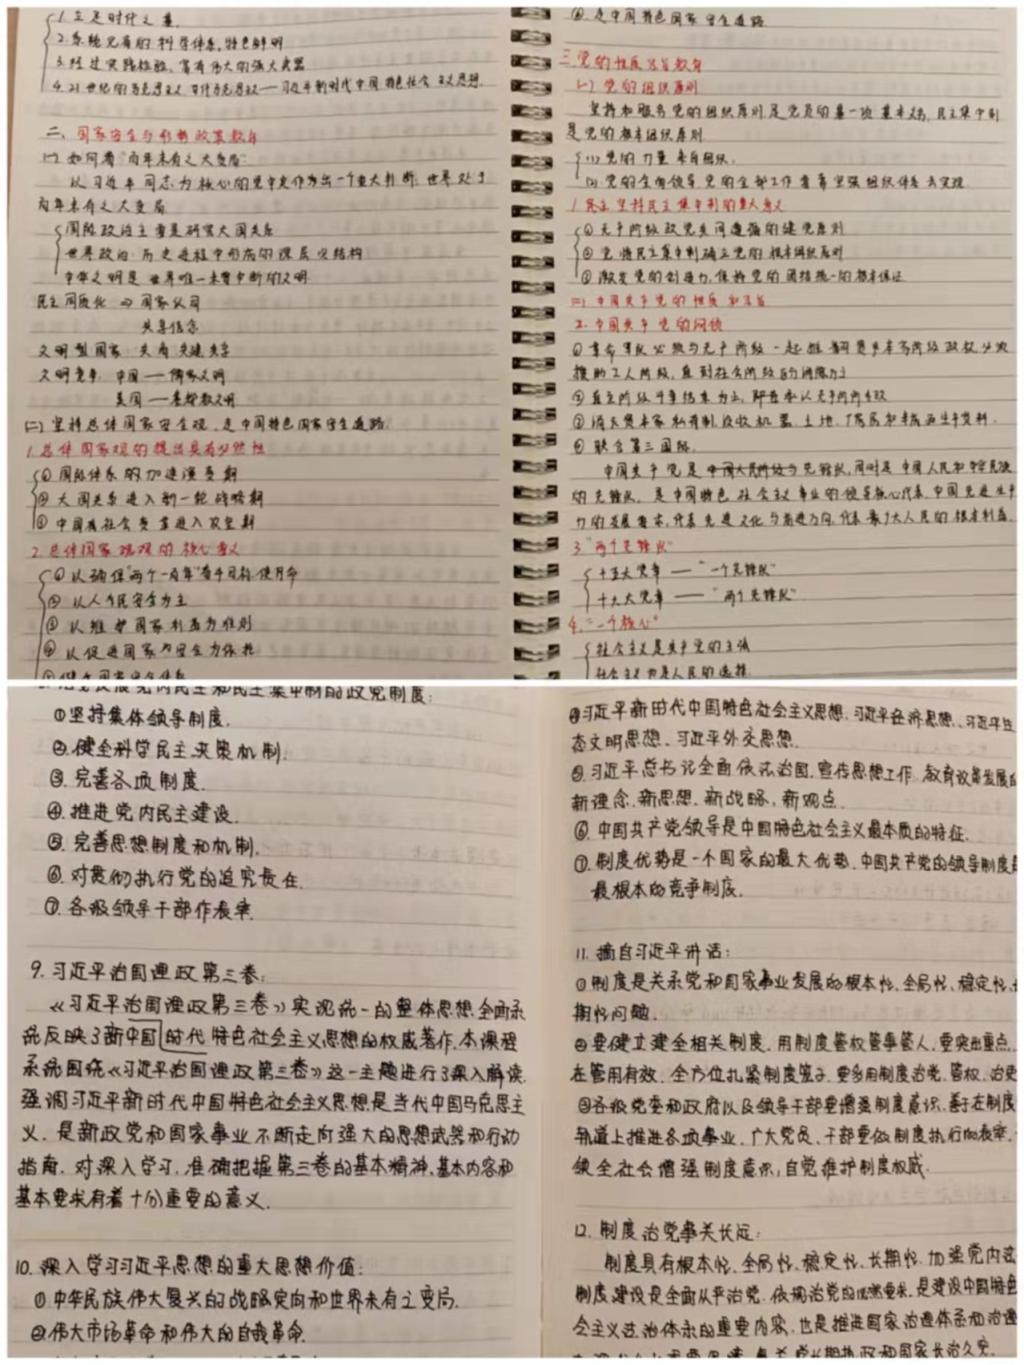 1.立足时代之基.
2.系统完备的科学体系,特色鲜明
3.经过实践检验,富有伟大的强大真
4.21世纪的马克思主义 当代马克思主义——习近平新时代中国特色社会主义思想.
二、国家安全与形势政策教育
(一)如何看"百年未有之大变局":
以习近平同志为核心的党中央作为出一个重大判断,世界处于
百年未有之大变局
国际政治主要是研究大国关系
世界政治:历史进程中形成的深层次结构
中华文明是世界唯一未曾中断的文明
民主同质化 ⇒ 国家认同
共享信念
文明型国家:共商共建共享
文明竞争:中国——儒家文明
美国——基督教文明
(二)坚持总体国家安全观,是中国特色国家安全道路.
1.总体国家观的提出具有必然性
①国际体系的加速演变期
②大国关系进入新一轮战略期
③中国有社会变革进入攻坚期
2.总体国家观观的核心要义
①以确保"两个一百年"奋斗目标使月命
②以人民安全为主
③以维护国家利益为准则
④以促进国家为安全为依托
⑤健全国家安全体系
④是中国特色国家安全道路
三.党的性质宗旨教育
(一)党的组织原则
坚持和服务党的组织原则是党员的第一项基本义务,民主集中制
是党的根本组织原则
(1)党的力量来自组织.
(2)党的全面领导党的全部工作者靠坚强组织体系去实现
1.民主坚持民主集中制的重大意义
①无产阶级政党共同遵循的建党原则
②党据民主集中制确立党的根本组织原则
③激发党的创造力,保持党的团结统一的根本保证
(二)中国共产党的性质和宗旨
2.中国共产党的纲领
①革命军队必须与无产阶级一起推翻资产本家阶级政权,必须
援助工人阶级,直到社会阶级的消除为止
②直至阶级斗争结束为止,即基本认无产阶所专政
③消灭资本家私有制没收机器、土地、厂房和半成品生产资料.
④联合第三国际.
中国共产党是中国人民阶级先锋队,同时是中国人民和中华民族
的先锋队,是中国特色社会主义事业的领导核心代表,中国先进生产
力的发展要求,代表先进文化与前进方向,代表最广大人民的根本利益.
3."两个先锋队"
十五大党章——"一个先锋队"
十六大党章——"两个先锋队"
4."一个核心"
社会主义是共产党的主张
社会主义也是人民的选择
党内民主和民主集中制的政党制度:
①坚持集体领导制度.
②健全科学民主决策机制.
③完善各项制度.
④推进党内民主建设.
⑤完善思想制度和机制.
⑥对贯彻执行党的追究责任.
⑦各级领导干部作表率.
9.习近平治国理政第三卷:
《习近平治国理政第三卷》实现统一的整体思想,全面系
统反映了新中国时代特色社会主义思想的权威著作,本课程
系统围绕《习近平治国理政第三卷》这一主题进行了深入解读
强调习近平新时代中国特色社会主义思想是当代中国马克思主
义,是新政党和国家事业不断走向强大的思想武器和行动
指南,对深入学习,准确把握第三卷的基本精神,基本内容和
基本要求有着十分重要的意义.
10.深入学习习近平思想的重大思想价值:
①中华民族伟大复兴的战略定向和世界未有之变局.
②伟大市场革命和伟大的自我革命.
④习近平新时代中国特色社会主义思想,习近平经济思想、习近平生
态文明思想、习近平外交思想.
⑤习近平总书记全面依法治国,宣传思想工作,教育改革发展的
新理念、新思想、新战略,新观点.
⑥中国共产党领导是中国特色社会主义最本质的特征.
⑦制度优势是一个国家的最大优势,中国共产党的领导制度是
最根本的竞争制度.
11.摘自习近平讲话:
①制度是关系党和国家事业发展的根本性、全局性、稳定性、长
期性问题.
②要健立建全相关制度,用制度管权管事管人,要突出重点,
在管用有效,全方位扎紧制度笼子,更多用制度治党、管权、治吏
③各级党委和政府以及领导干部要增强制度意识,善于在制度
轨道上推进各项事业,广大党员、干部要做制度执行的表率,
领全社会增强制度意识,自觉维护制度权威.
12.制度治党事关长远:
制度具有根本性、全局性、稳定性、长期性,加强党内法
制度建设是全面从严治党、依规治党的必然要求,是建设中国特色
会主义法治体系的重要内容,也是推进国家治理体系和治理